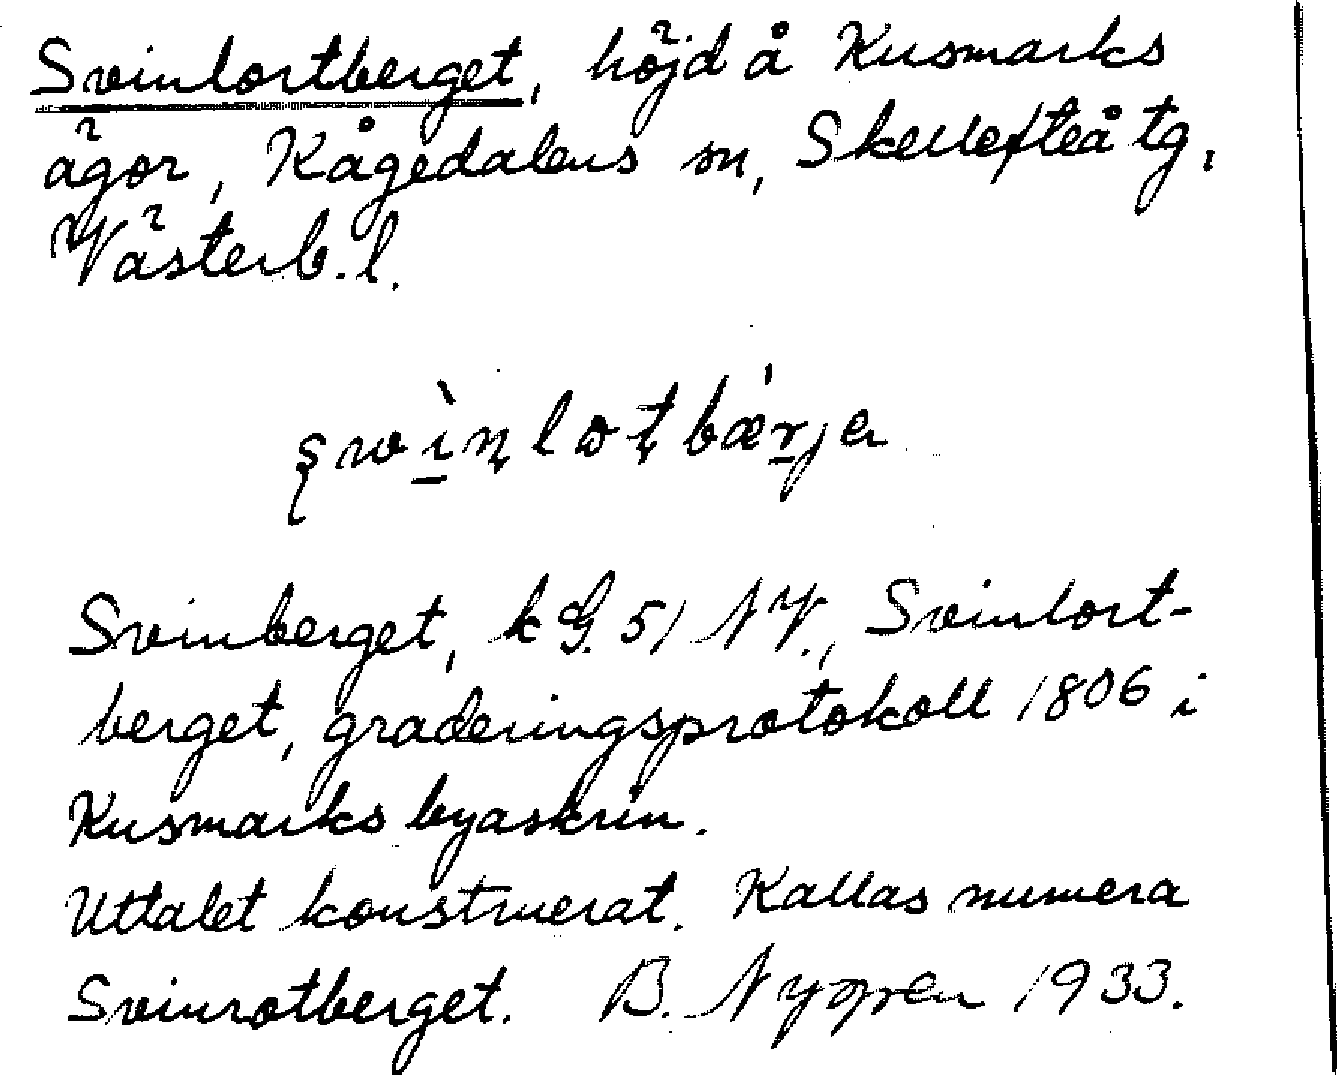 Svinlortberget, höjd å Kusmarks
ägor, Kågedalens sn, Skellefteå tg,
Västerb. l.
Svinberget, kG. 51 NV., Svinlort-
berget, graderingsprotokoll 1806 i
Kusmarks byaskrin.
Uttalet konstruerat. Kallas numera
Svinrotberget. B. Nygren 1933.